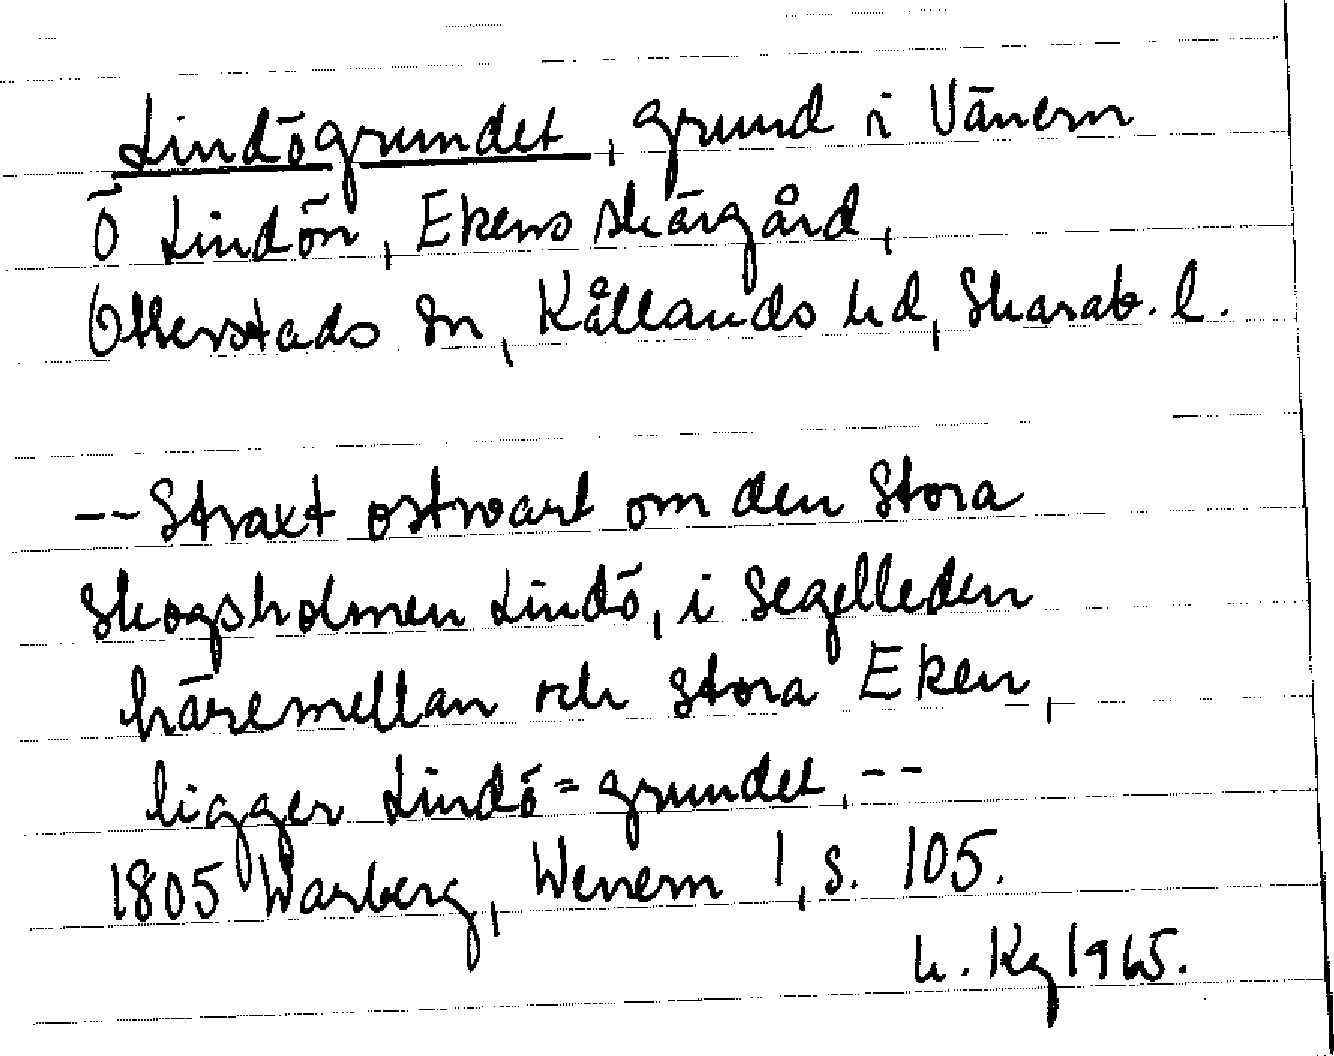 Lindögrundet, grund i Vänern
Ö Lindön, Ekens skärgård,
Otterstads sn, Kållands hd, Skarab. l.
-- Straxt ostwart om den Stora
Skogsholmen Lindö, i Segelleden
häremellan och Stora Eken,
ligger Lindö=grundet. --
1805 Warberg, Wenern 1, s. 105.
h. Kg 1965.